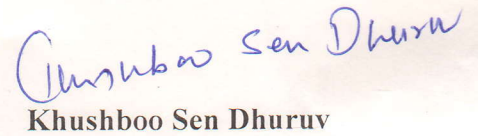 Khushboo Sen Dhuruv
Khushboo Sen Dhuruv